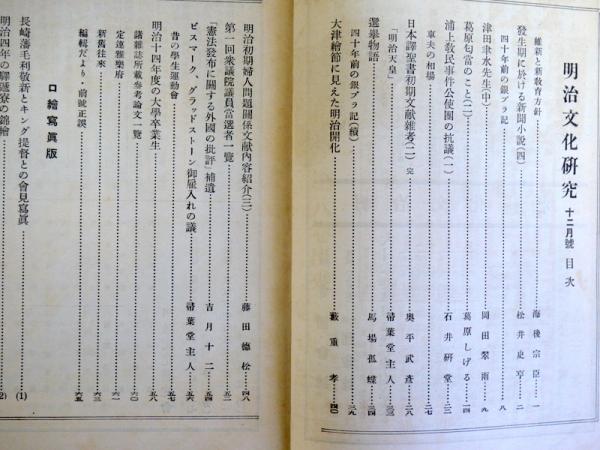 明治文化研究 十二月號 目次
維新と新敎育方針 海後宗臣 一
發生期に於ける新聞小說(四) 松井史亭 二
四十年前の銀ブラ記 八
津田聿水先生(中) 岡田翠雨 九
葛原勾當のこと(二) 葛原しげる 二四
浦上敎民事件公使團の抗議(一) 石井硏堂 二三
車夫の相場 二七
日本譯聖書初期文献雜考(二)完 奥平武彥 二八
「明治天皇」 帚葉堂主人 三三
選擧物語 馬場孤蝶 三四
四十年前の銀ブラ記(續) 三九
大津繪節に見えた明治開化 藪重孝 四〇
明治初期婦人問題關係文献內容紹介(三) 藤田德松 四八
第一回衆議院議員當選者一覽 五二
「憲法發布に關する外國の批評」補遺 吉月十二 五四
ビスマーク、グラッドストーン御雇入れの議 帚葉堂主人 五六
昔の學生運動會 五七
明治十四年度の大學卒業生 五八
諸雜誌所載參考論文一覽 六〇
定連雜樂府 六一
新舊往來 六三
編輯だより・前號正誤 六五
口繪寫眞版
長崎藩毛利敬新とキング提督との會見寫眞 (1)
明治四年の驛遞寮の錦繪 (2)